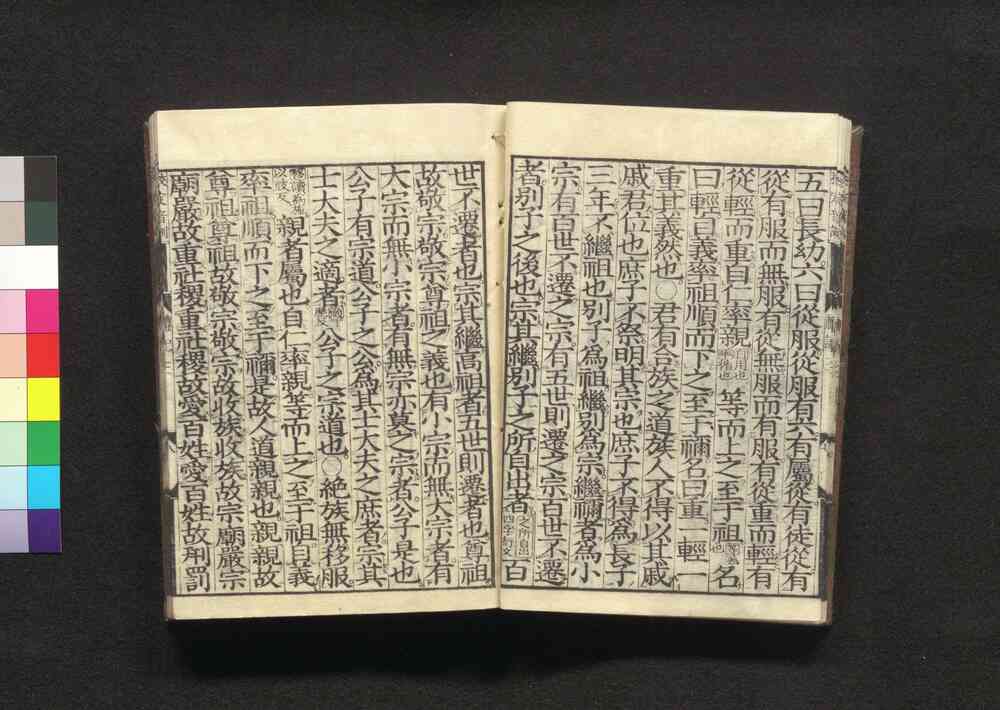 五曰長幼六曰從服從服有六有屬從有徒從有
從有服而無服有從無服而有服有從重而輕有
從輕而重自仁率親自用也率循也等而上之至于祖名
曰輕自義率祖順而下之至于禰名曰重一輕一
重其義然也〇君有合族之道族人不得以其戚
戚君位也庶子不祭明其宗也庶子不得爲長子
三年不繼祖也別子爲祖繼別爲宗繼禰者爲小
宗有百世不遷之宗有五世則遷之宗百世不遷
者別子之後也宗其繼別子之所自出者之所自出四字衍文百
世不遷者也宗其繼高祖者五世則遷者也尊祖
故敬宗敬宗尊祖之義也有小宗而無大宗者有
大宗而無小宗者有無宗亦莫之宗者公子是也
公子有宗道公子之公爲其士大夫之庶者宗其
士大夫之適者公子之宗道也〇絶族無移服
親者屬也自仁率親等而上之至于祖自義
率祖順而下之至于禰是故人道親親也親親故
尊祖尊祖故敬宗敬宗故收族收族故宗廟嚴宗
廟嚴故重社稷重社稷故愛百姓愛百姓故刑罰